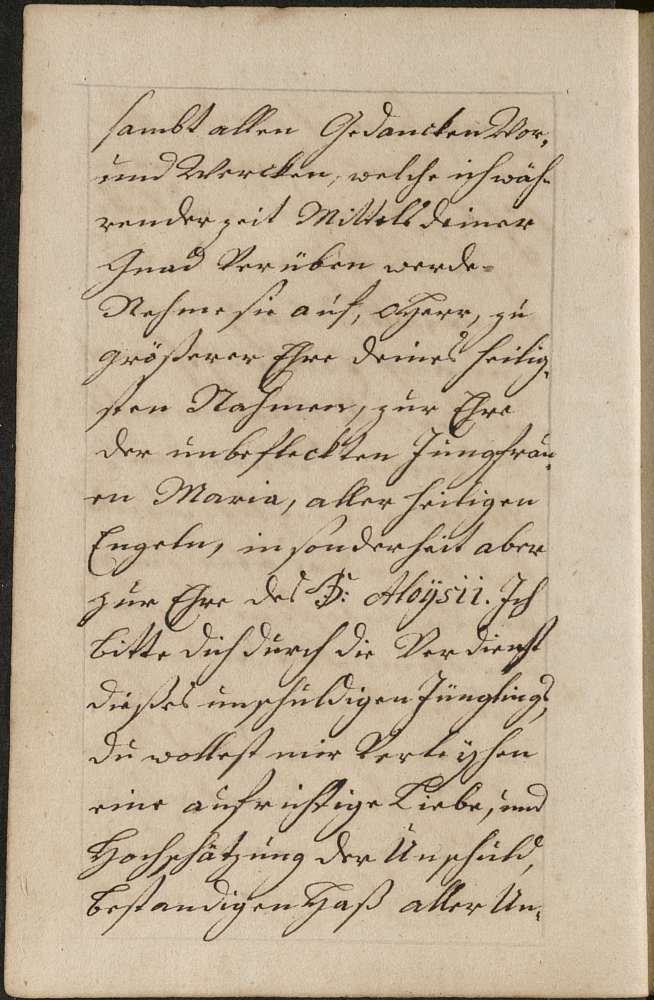 sambt allen Gedancken Wor,
und Wercken, welche ich wäh-
render zeit Mittels deiner
Gnad Verüben werde.
Nehme sie auf, O Herr, zu
größerer Ehre deines heilig,
sten Nahmen, zur Ehre
der unbefleckten Jungfrau,
en Maria, aller heiligen
Engeln, insonderheit aber
zur Ehre des H: Aloÿsii. Ich
bitte dich durch die Verdienst
dießes unschuldigen Jünglings,
du wollest mir Verleÿhen
eine aufrichtige Liebe, und
Hochschätzung der Unschuld,
bestandigen Haß aller Un,